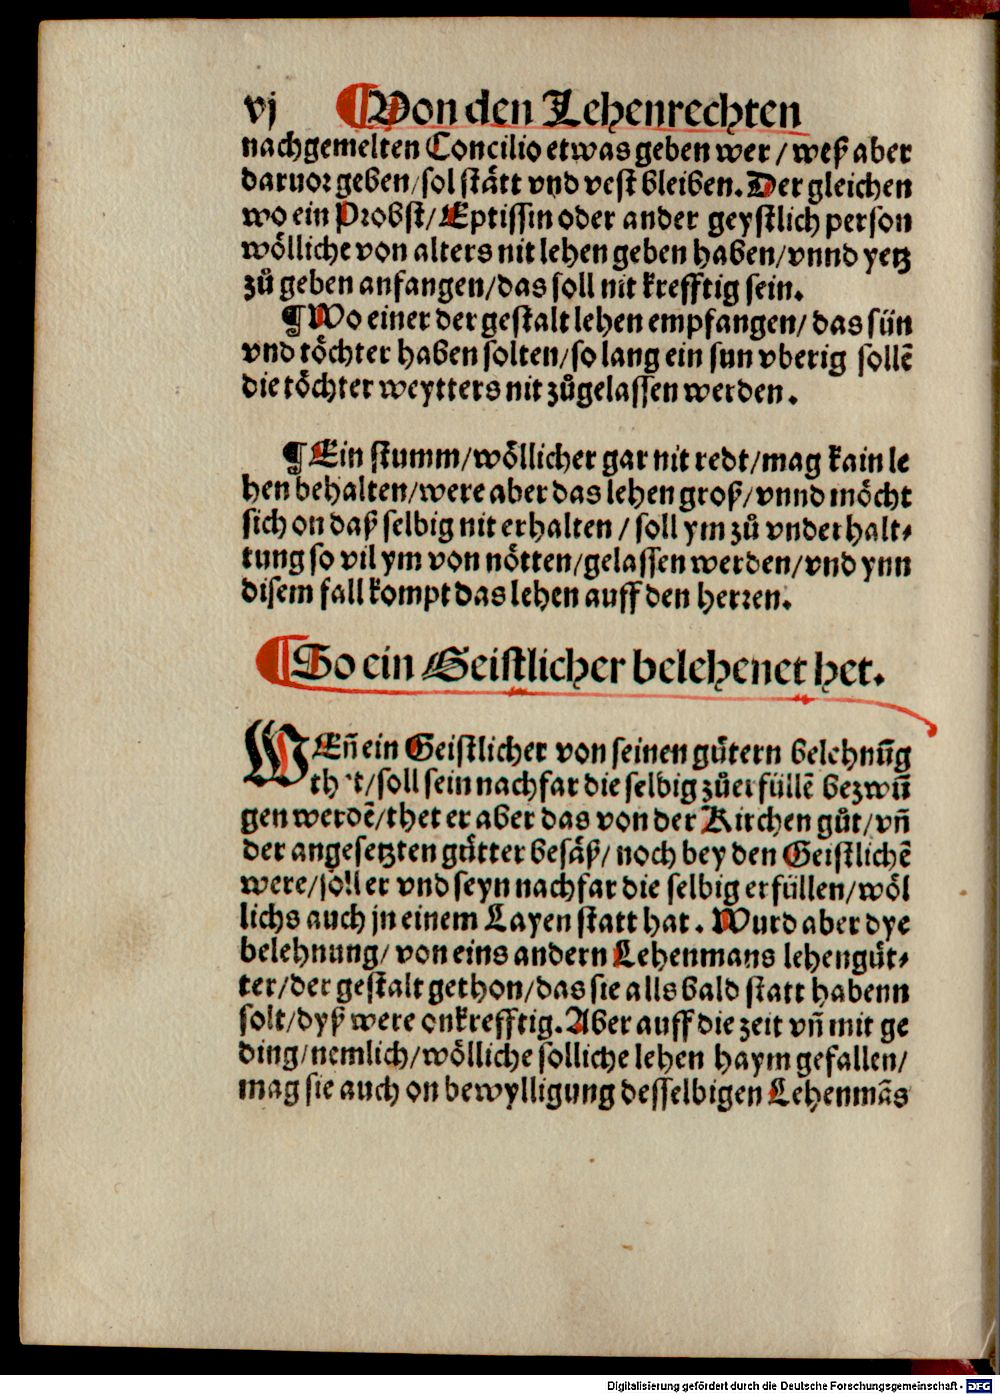 vj ¶Von den Lehenrechten
nachgemelten Concilio etwas geben wer / weß aber
daruor geben/sol stätt vnd vest bleiben. Der gleichen
wo ein Probst/Eptissin oder ander geystlich person
wölliche von alters nit lehen geben haben/vnnd yetz
zů geben anfangen/das soll nit krefftig sein.
¶Wo einer der gestalt lehen empfangen/ das sün
vnd töchter haben solten/so lang ein sun vberig sollē
die töchter weytters nit zůgelassen werden.
¶Ein stumm/wöllicher gar nit redt/mag kain le
hen behalten/were aber das lehen groß/vnnd möcht
sich on daß selbig nit erhalten / soll ym zů vnderhalt⸗
tung so vil ym von nötten/gelassen werden/vnd ynn
disem fall kompt das lehen auff den herren.
¶So ein Geistlicher belehenet het.
WEn̄ ein Geistlicher von seinen gütern belehnūg
thet/soll sein nachfar die selbig zůerfüllē bezwū
gen werdē/thet er aber das von der Kirchen gůt/vn̄
der angesetzten gütter besäß/ noch bey den Geistlichē
were/soll er vnd seyn nachfar die selbig erfüllen/wöl
lichs auch jn einem Layen statt hat. Wurd aber dye
belehnung/ von eins andern Lehenmans lehengüt⸗
ter/der gestalt gethon/das sie alls bald statt habenn
solt/dyß were onkrefftig. Aber auff die zeit vn̄ mit ge
ding/nemlich/wölliche solliche lehen haym gefallen/
mag sie auch on bewylligung desselbigen Lehenmās
Digitalisierung gefördert durch die Deutsche Forschungsgemeinschaft - DFG